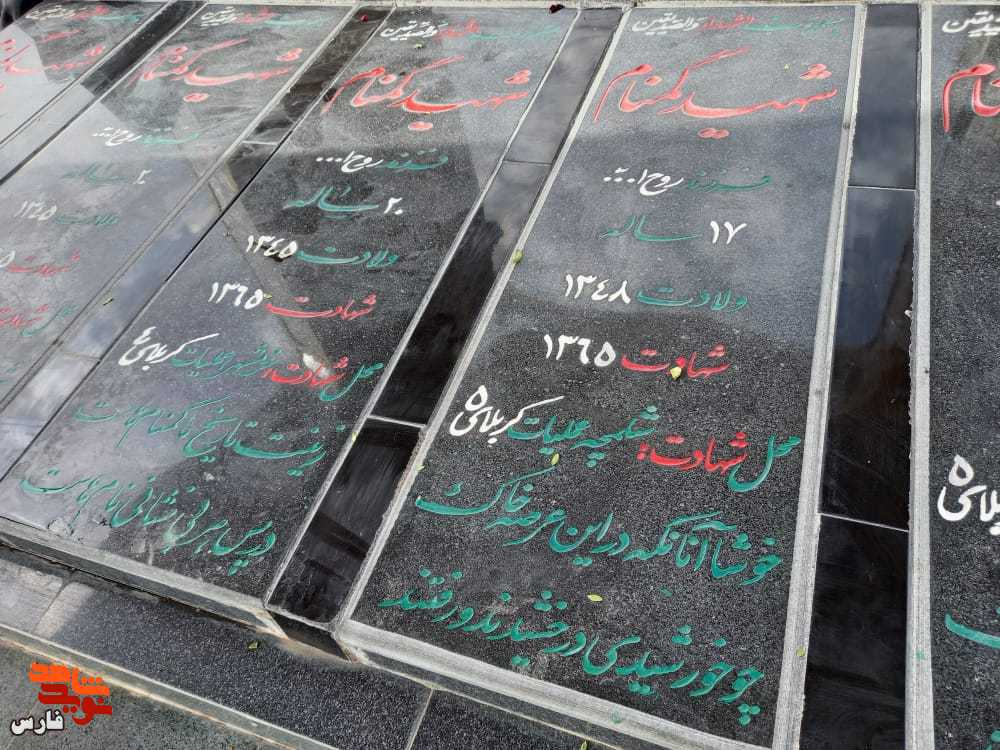 والصدیقین
شهید گمنام
فرزند روح ا...
۱۷ ساله
ولادت ۱۳۴۸
شهادت ۱۳۶۵
محل شهادت: شلمچه عملیات کربلای ۵
خوشا آنانکه در این عرصه خاک
چو خورشیدی درخشیدند و رفتند
والصدیقین
شهید گمنام
فرزند روح ا...
۲۰ ساله
ولادت ۱۳۴۵
شهادت ۱۳۶۵
محل شهادت: عملیات کربلای ۴
زینت تاریخ ما گمنام هاست
در پس هر بی نشانی نام هاست
شهید گمنام
فرزند روح ا...
ساله
ولادت ۱۳۴۵
شهادت
والصدیقین
کربلای ۵
نوید شاهد
فارس